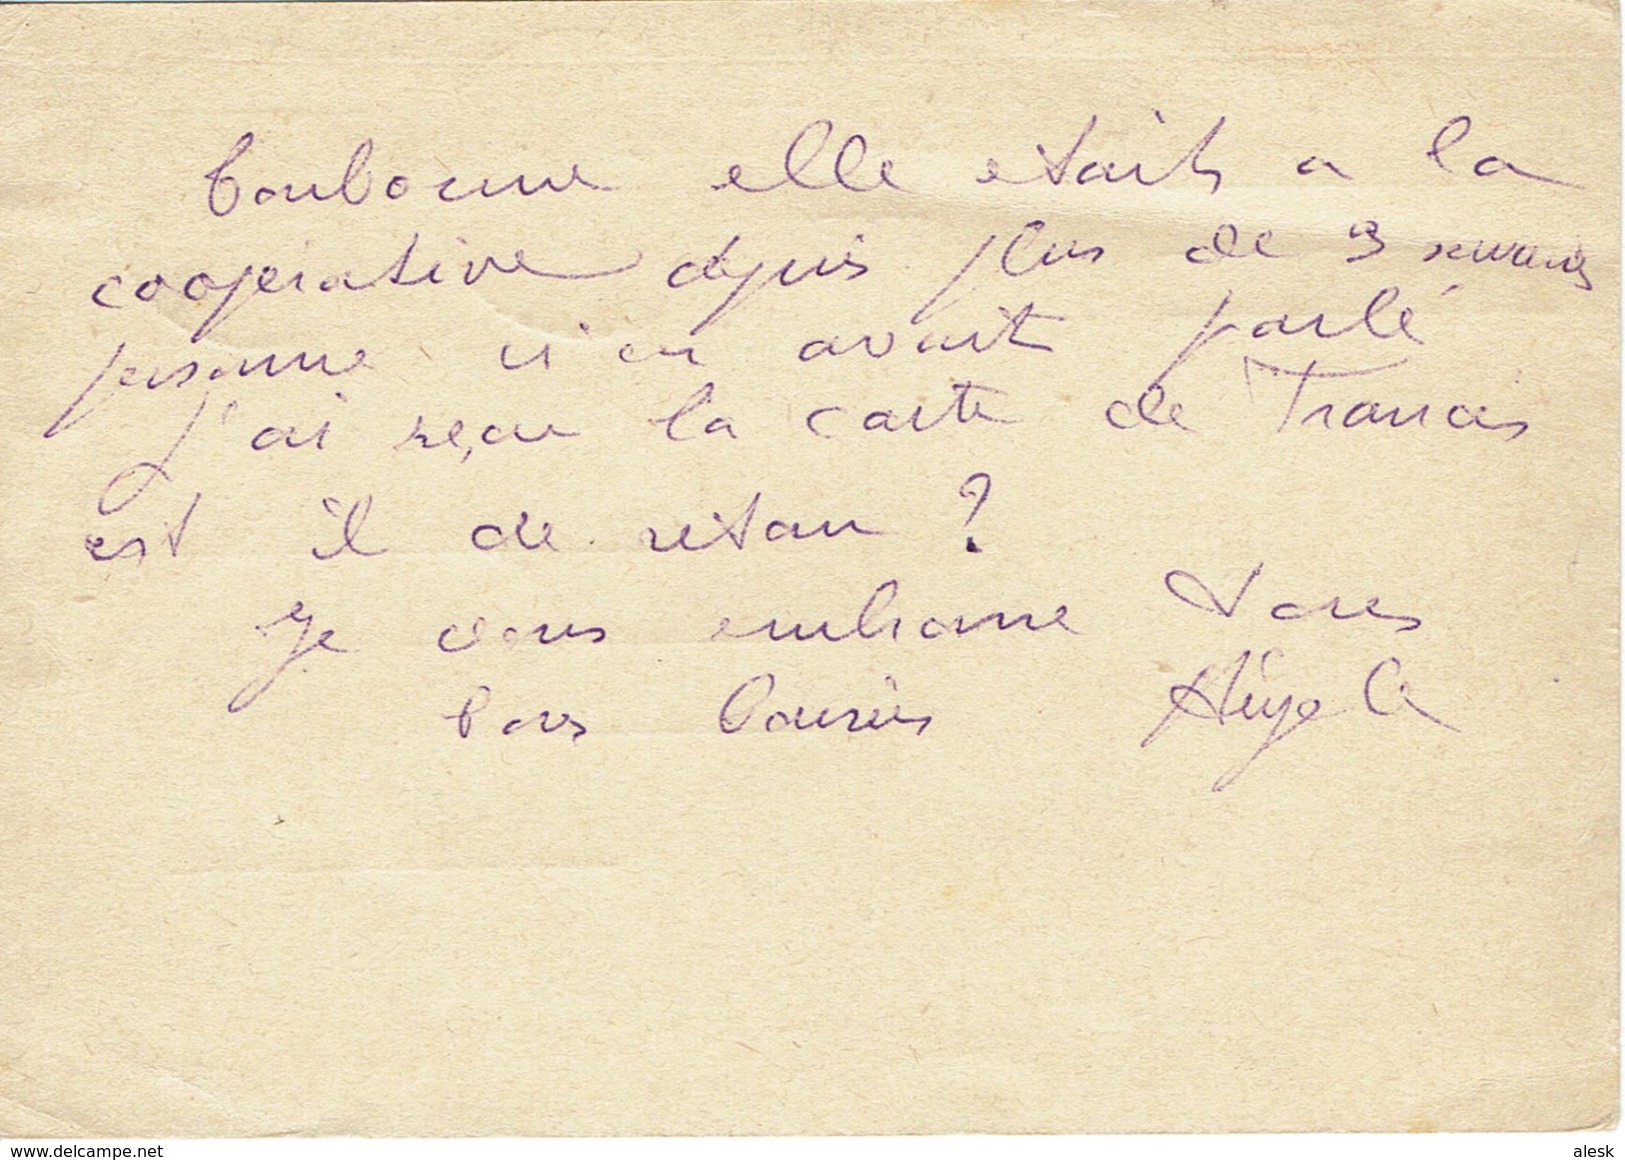 bonbonne elle etait a la
cooperative depuis plus de 3 semaines
personne n'en avait parlé
j'ai reçu la carte de Francis
est il de retour ?
Je vous embrasse tous
bons baisers Angele
alesk
delcampe.net